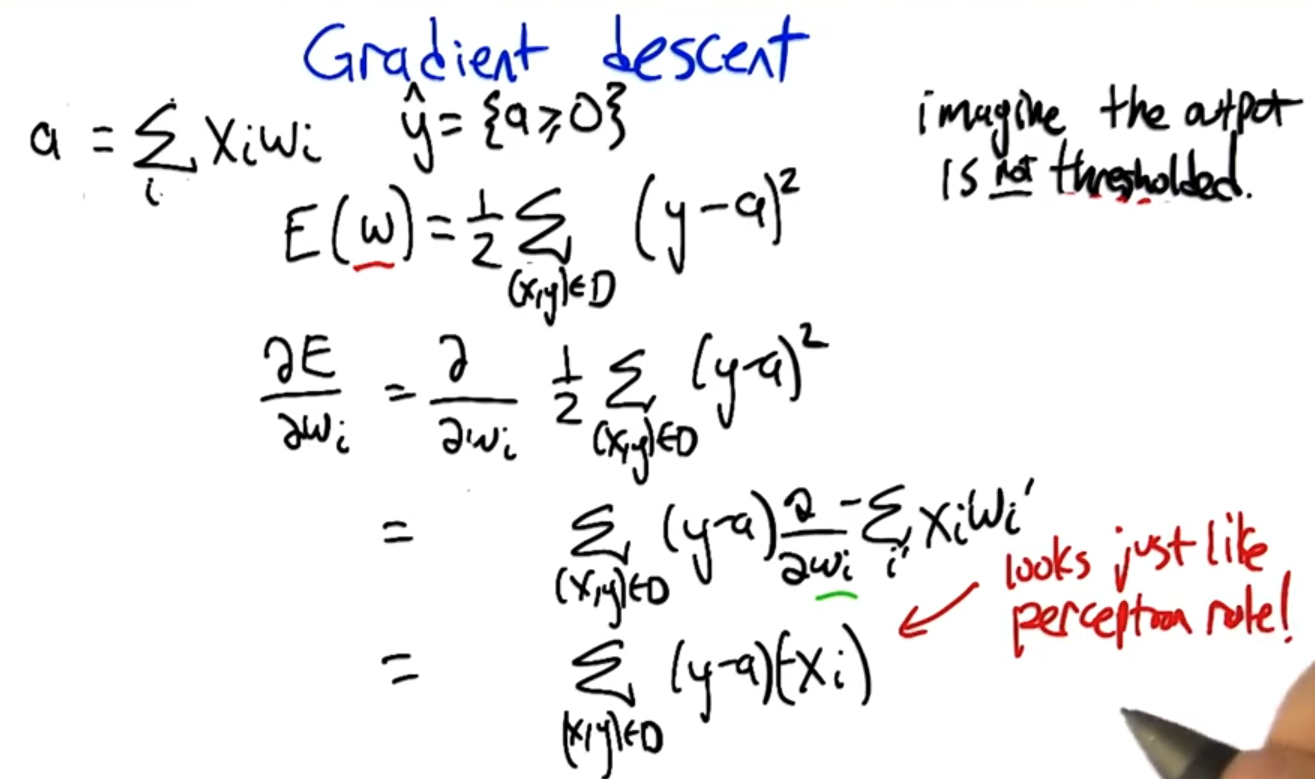 Gradient descent
a = ∑_i x_i w_i   ŷ = {a ≥ 0}
imagine the output
is not thresholded.
E(w) = 1/2 ∑_{(x,y)∈D} (y-a)²
∂E/∂w_i = ∂/∂w_i 1/2 ∑_{(x,y)∈D} (y-a)²
= ∑_{(x,y)∈D} (y-a) ∂/∂w_i -∑_{i'} x_i w_i'
looks just like
perceptron rule!
= ∑_{(x,y)∈D} (y-a)(-x_i)